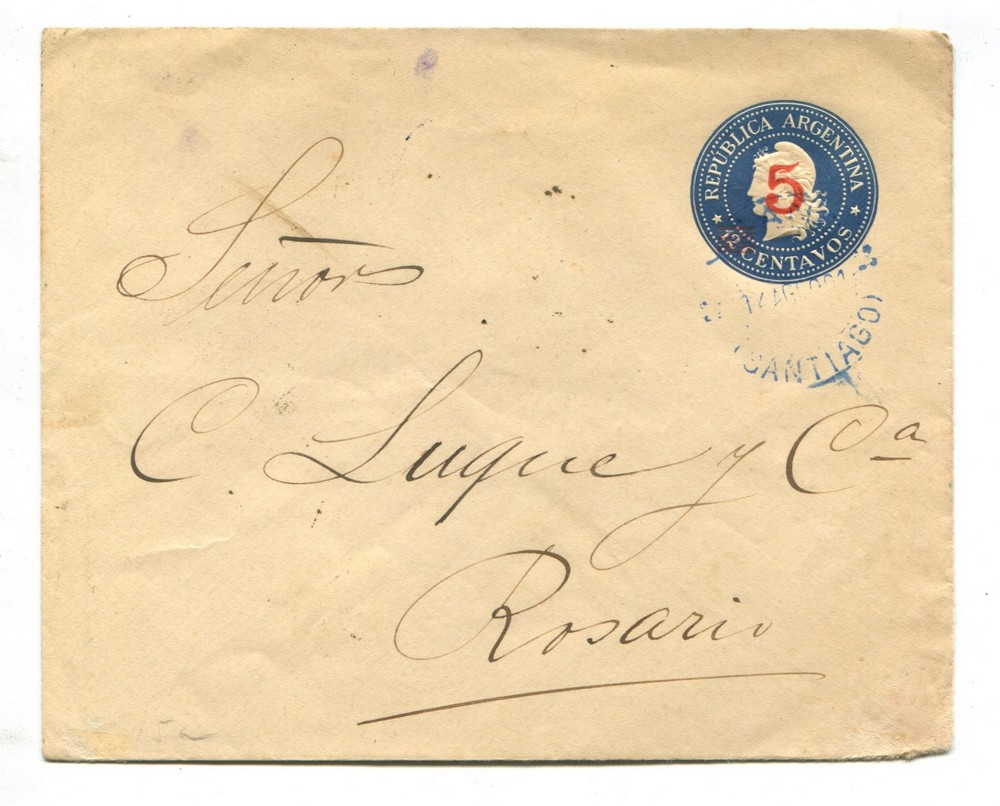 REPUBLICA ARGENTINA
5
12 CENTAVOS
(SANTIAGO)
Señors
C. Luque y Cª
Rosario